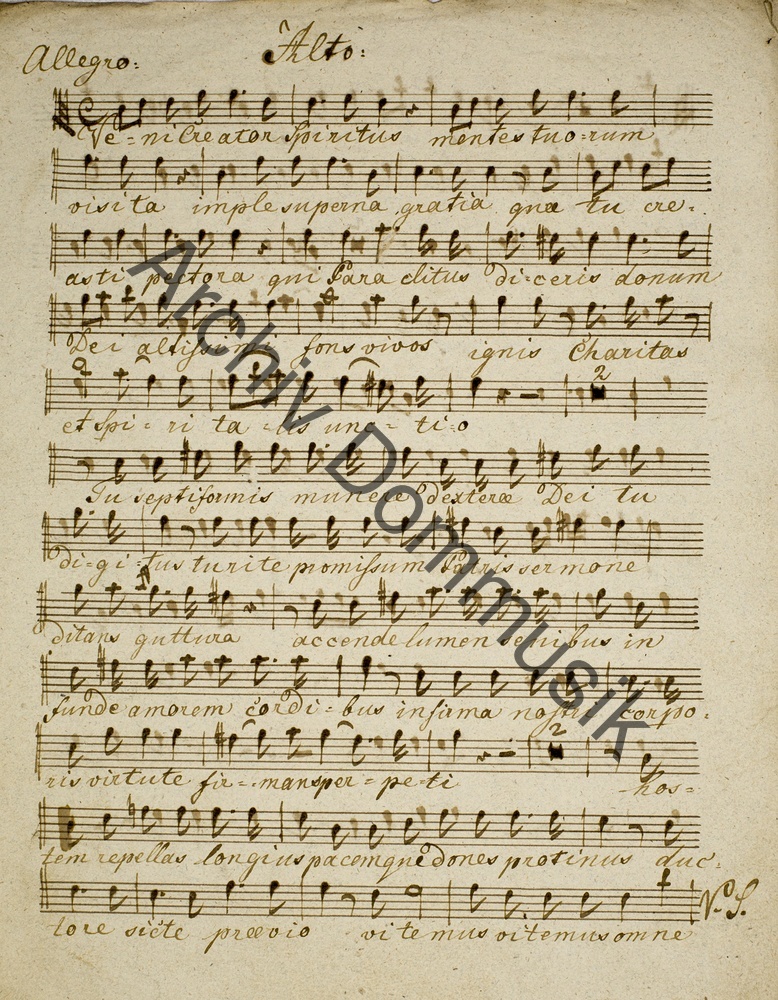 Allegro: Alto:
Ve=ni Creator Spiritus mentes tuo=rum
visita imple superna gratia quæ tu cre=
asti pectora qui Para clitus di=ceris donum
Dei altissimi fons vivos ignis Charitas
2
et Spi=ri ta=lis unc=ti=o
Tu septiformis munere dexteræ Dei tu
di=gi=tus tu rite promissum Patris sermone
ditans guttura accende lumen sensibus in
funde amorem cordi=bus infirma nostri corpo=
2
ris virtute fir=mans per=pe=ti hos=
tem repellas longius pacemque dones protinus duc=
tore sicte prævio vitemus vitemus omne
V. S.
Archiv Dommusik